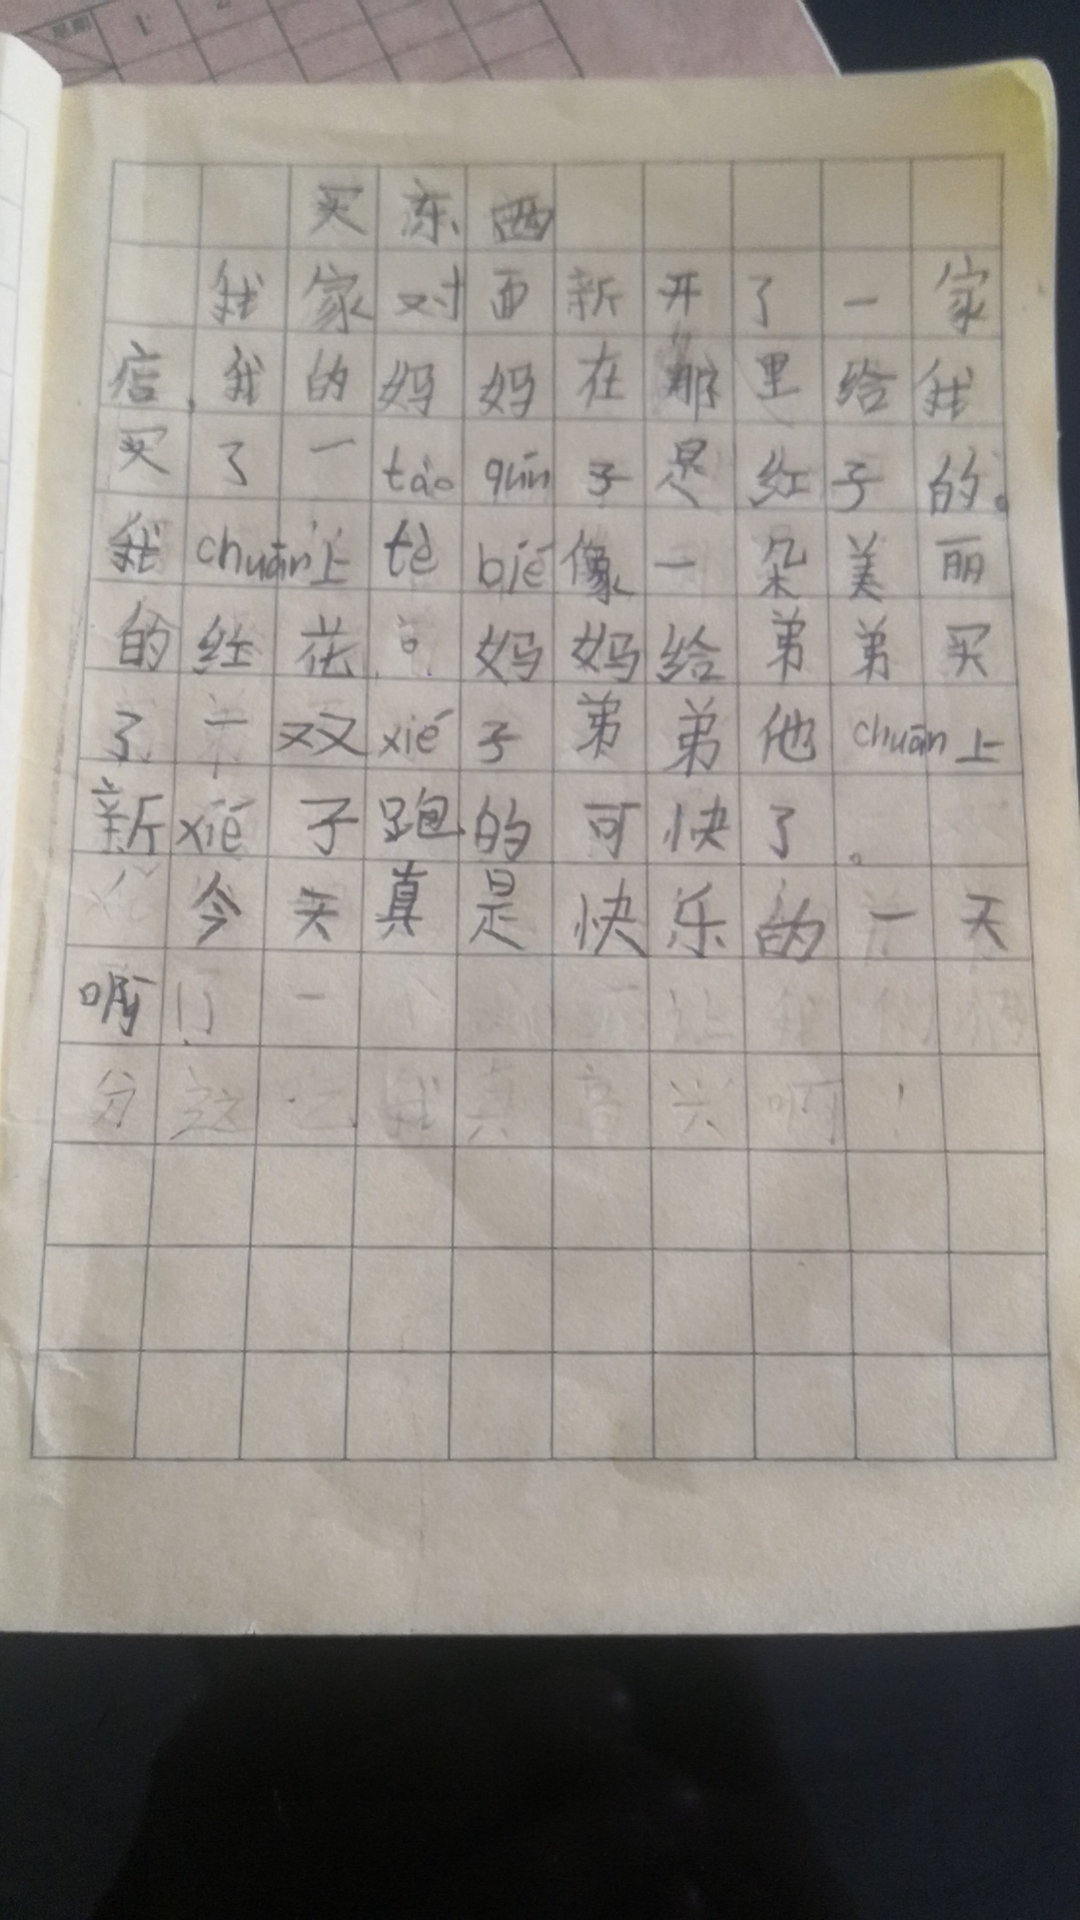 买东西
我家对面新开了一家
店,我的妈妈在那里给我
买了一tào qún子是红子的。
我chuān上tè bié像一朵美丽
的红花。妈妈给弟弟买
了一双xié子弟弟他chuān上
新xié子跑的可快了。
今天真是快乐的一天
啊!
分 这 我真高兴啊!